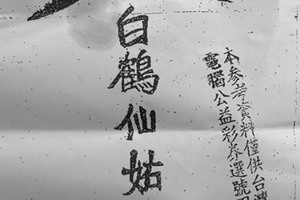 本參考資料僅供台灣
電腦公益彩券選號
白鶴仙姑